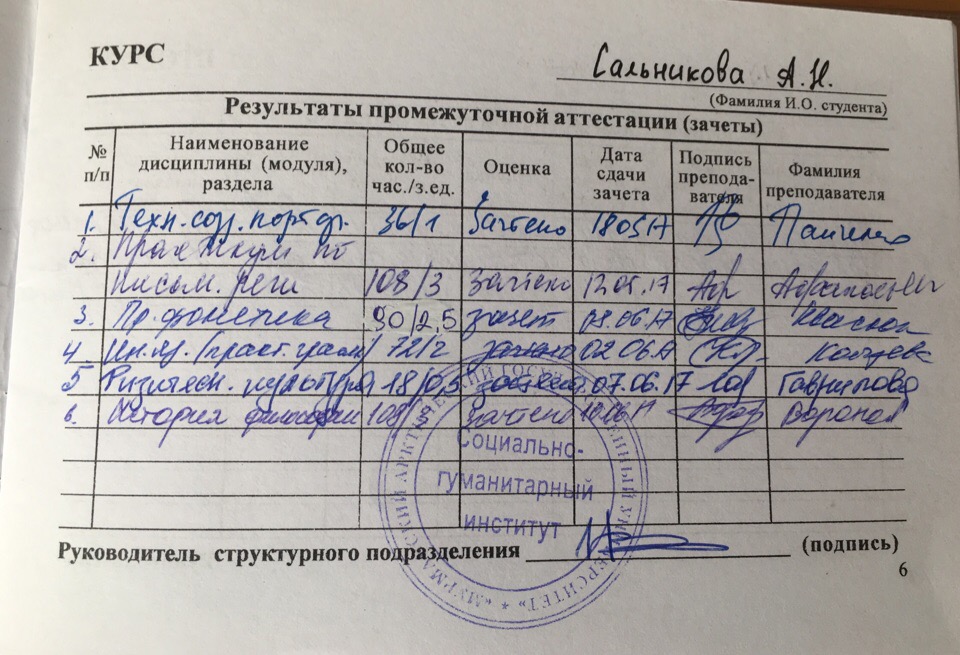 КУРС
Сальникова А.Н.
(Фамилия И.О. студента)
Результаты промежуточной аттестации (зачеты)
№ п/п Наименование дисциплины (модуля), раздела Общее кол-во час./з.ед. Оценка Дата сдачи зачета Подпись препода-вателя Фамилия преподавателя
1. Техн. соз. портф. 36/1 Зачтено 18.05.17
2. Практикум по
письм. речи 108/3 зачтено 12.05.17
3. Пр. фонетика 90/2,5 зачет 08.06.17
4 Ин. яз. (практ. грам.) 72/2 зачтено 02.06.17
5 Физическ. культура 18/0,5 зачтено 07.06.17 Гаврилова
6. История философии 108/3 Зачтено
Социально-
гуманитарный
институт
«МУРМАНСКИЙ АРКТИЧЕСКИЙ ГОСУДАРСТВЕННЫЙ УНИВЕРСИТЕТ»
Руководитель структурного подразделения (подпись)
6